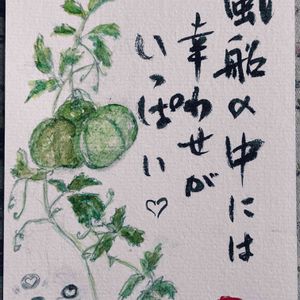 風船の中には
幸わせが
いっぱい♡